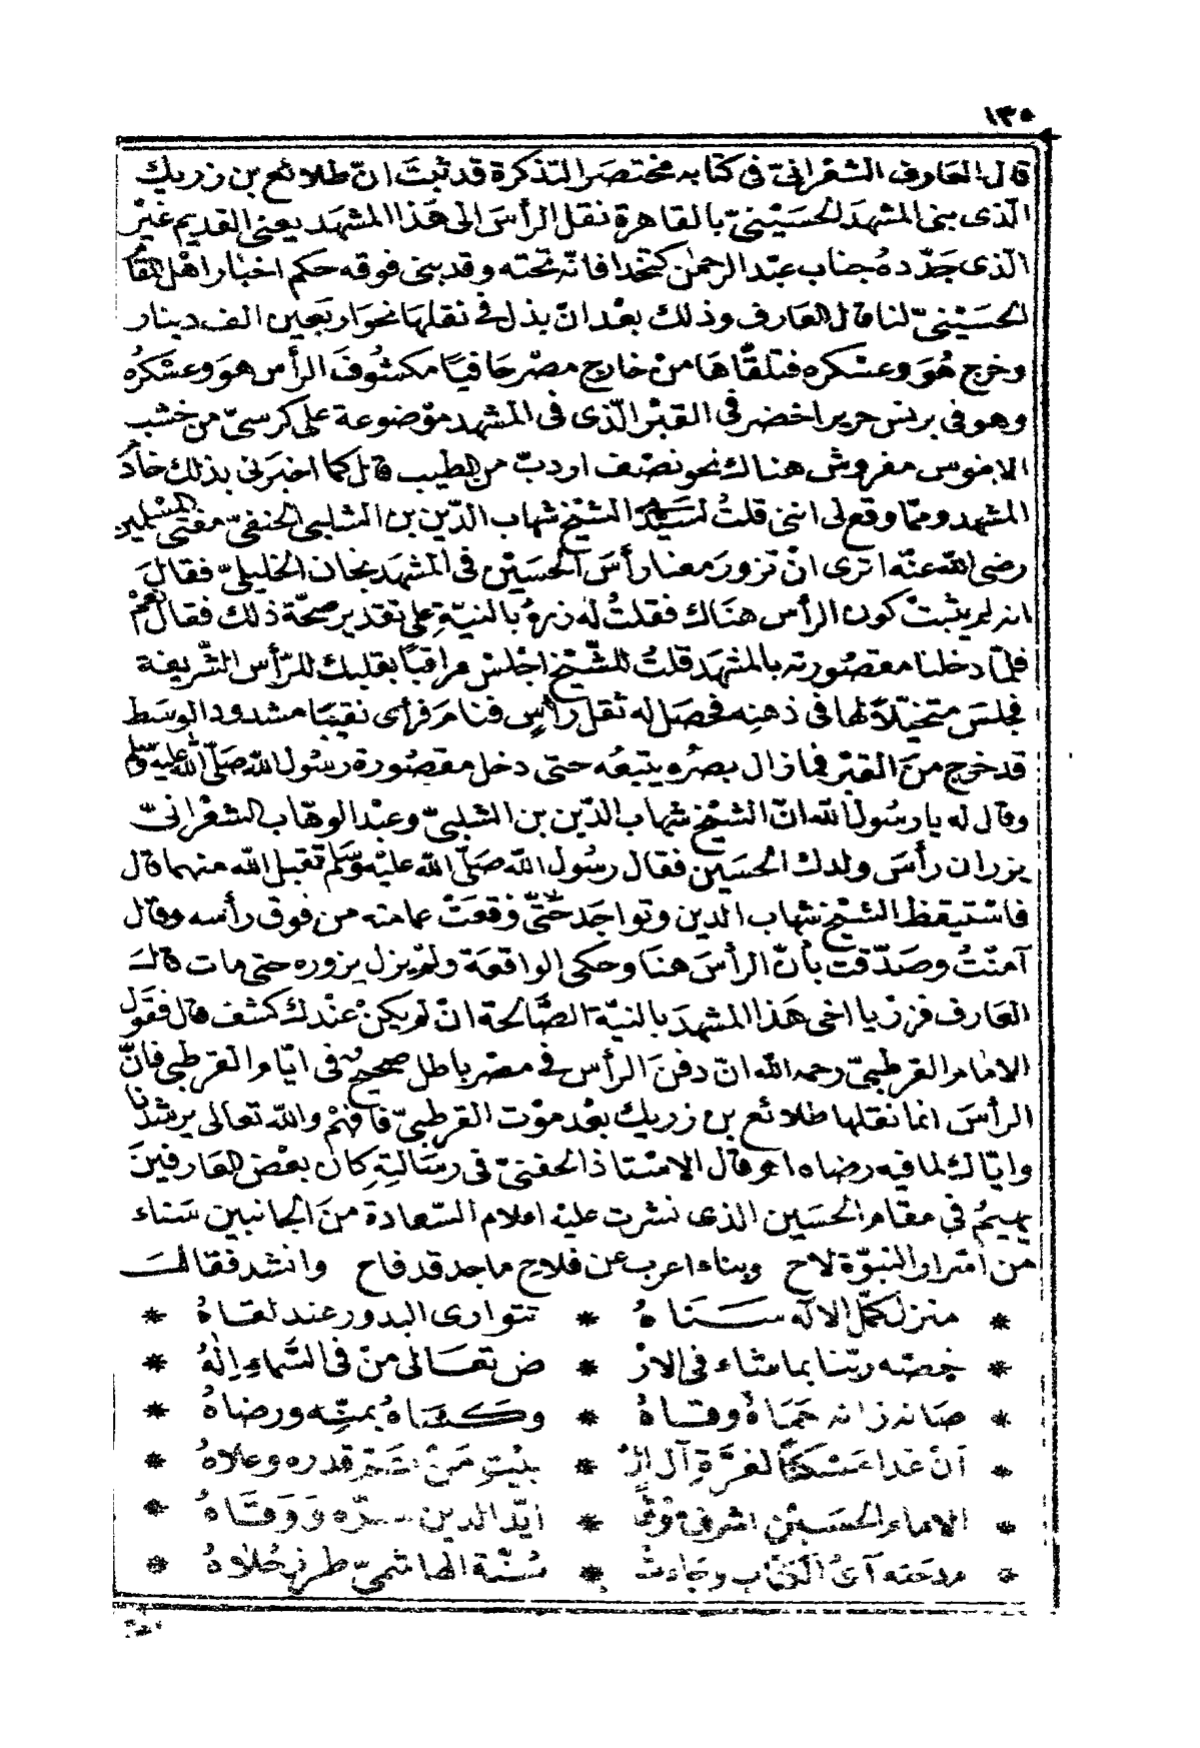 ١٣٥
قال العارف الشعرانىّ فى كتابه مختصر التذكرة قد ثبت انّ طلائع بن زريك
الّذى بنى المشهد الحسينىّ بالقاهرة نقل الرأس الى هذا المشهد يعنى القديم غير
الّذى جدّده جناب عبد الرحمن كتخدا فانّه تحته وقد بنى فوقه حكم اخبار اهل المقا
الحسينىّ لنا قال العارف وذلك بعد ان بذل فى نقلها نحو اربعين الف دينار
وخرج هو وعسكره فتلقّاها من خارج مصر حافيا مكشوف الرأس هو وعسكره
وهو فى برنس حرير اخضر فى القبر الّذى فى المشهد موضوعة على كرسىّ من خشب
الابنوس مفروش هناك نحو نصف اردبّ من الطيب قال كما اخبرنى بذلك خادم
المشهد وممّا وقع لى اننى قلت لسيدى الشيخ شهاب الدّين بن الشلبى الحنفىّ مفتى المسلمين
رضى الله عنه اترى ان تزور معنا رأس الحسين فى المشهد بخان الخليلىّ فقال
انه لم يثبت كون الرأس هناك فقلت له زره بالنيّة على تقدير صحّة ذلك فقال نعم
فلمّا دخلنا مقصورته بالمشهد قلت للشّيخ اجلس مراقبا بقلبك للرّأس الشّريفة
فجلس متخيّلا لها فى ذهنه فحصل له ثقل رأس فنام فرأى نقيبا مشدود الوسط
قد خرج من القبر فما زال بصره يتبعه حتى دخل مقصورة رسول الله صلّى الله عليه وسلم
وقال له يا رسول الله انّ الشيخ شهاب الدّين بن الشلبىّ وعبد الوهّاب الشعرانىّ
يزران رأس ولدك الحسين فقال رسول الله صلّى الله عليه وسلم تقبل الله منهما قال
فاستيقظ الشيخ شهاب الدين وتواجد حتّى وقعت عمامته من فوق رأسه وقال
آمنت وصدّقت بأنّ الرأس هنا وحكى الواقعة ولم يزل يزوره حتى مات قال
العارف فزر يا اخى هذا المشهد بالنيّة الصّالحة ان لم يكن عندك كشف قال فقول
الامام القرطبىّ رحمه الله انّ دفن الرأس فى مصر باطل صحيح فى ايّام القرطبى فانّ
الرأس انما نقلها طلائع بن زريك بعد موت القرطبىّ فافهم والله تعالى يرشدنا
وايّاك لما فيه رضاه اهو قال الاستاذ الحفنىّ فى رسالته كان بعض العارفين
يهيم فى مقام الحسين الذى نشرت عليه اعلام السّعادة من الجانبين سناء
من اسرار النبوّة لاح وبناء اعرب عن فلاح ماجد قد فاح وانشد فقال
* منزل كمّل الاله سناه * تتوارى البدور عند لقاه *
* خصّه ربّنا بما شاء فى الار * ض تعالى من فى السّماء اله *
* صانه زانه حماه وقاه * وكساه بمنّه ورضاه *
* ان غدا مسكنا لغرّة آل * بيت من قدره وعلاه *
* الامام الحسين اشرف مولى * ايّد الدين سرّه ووقاه *
* مدحته آى الكتاب وجاءت * سنّة الهاشمىّ طرز حلاه *